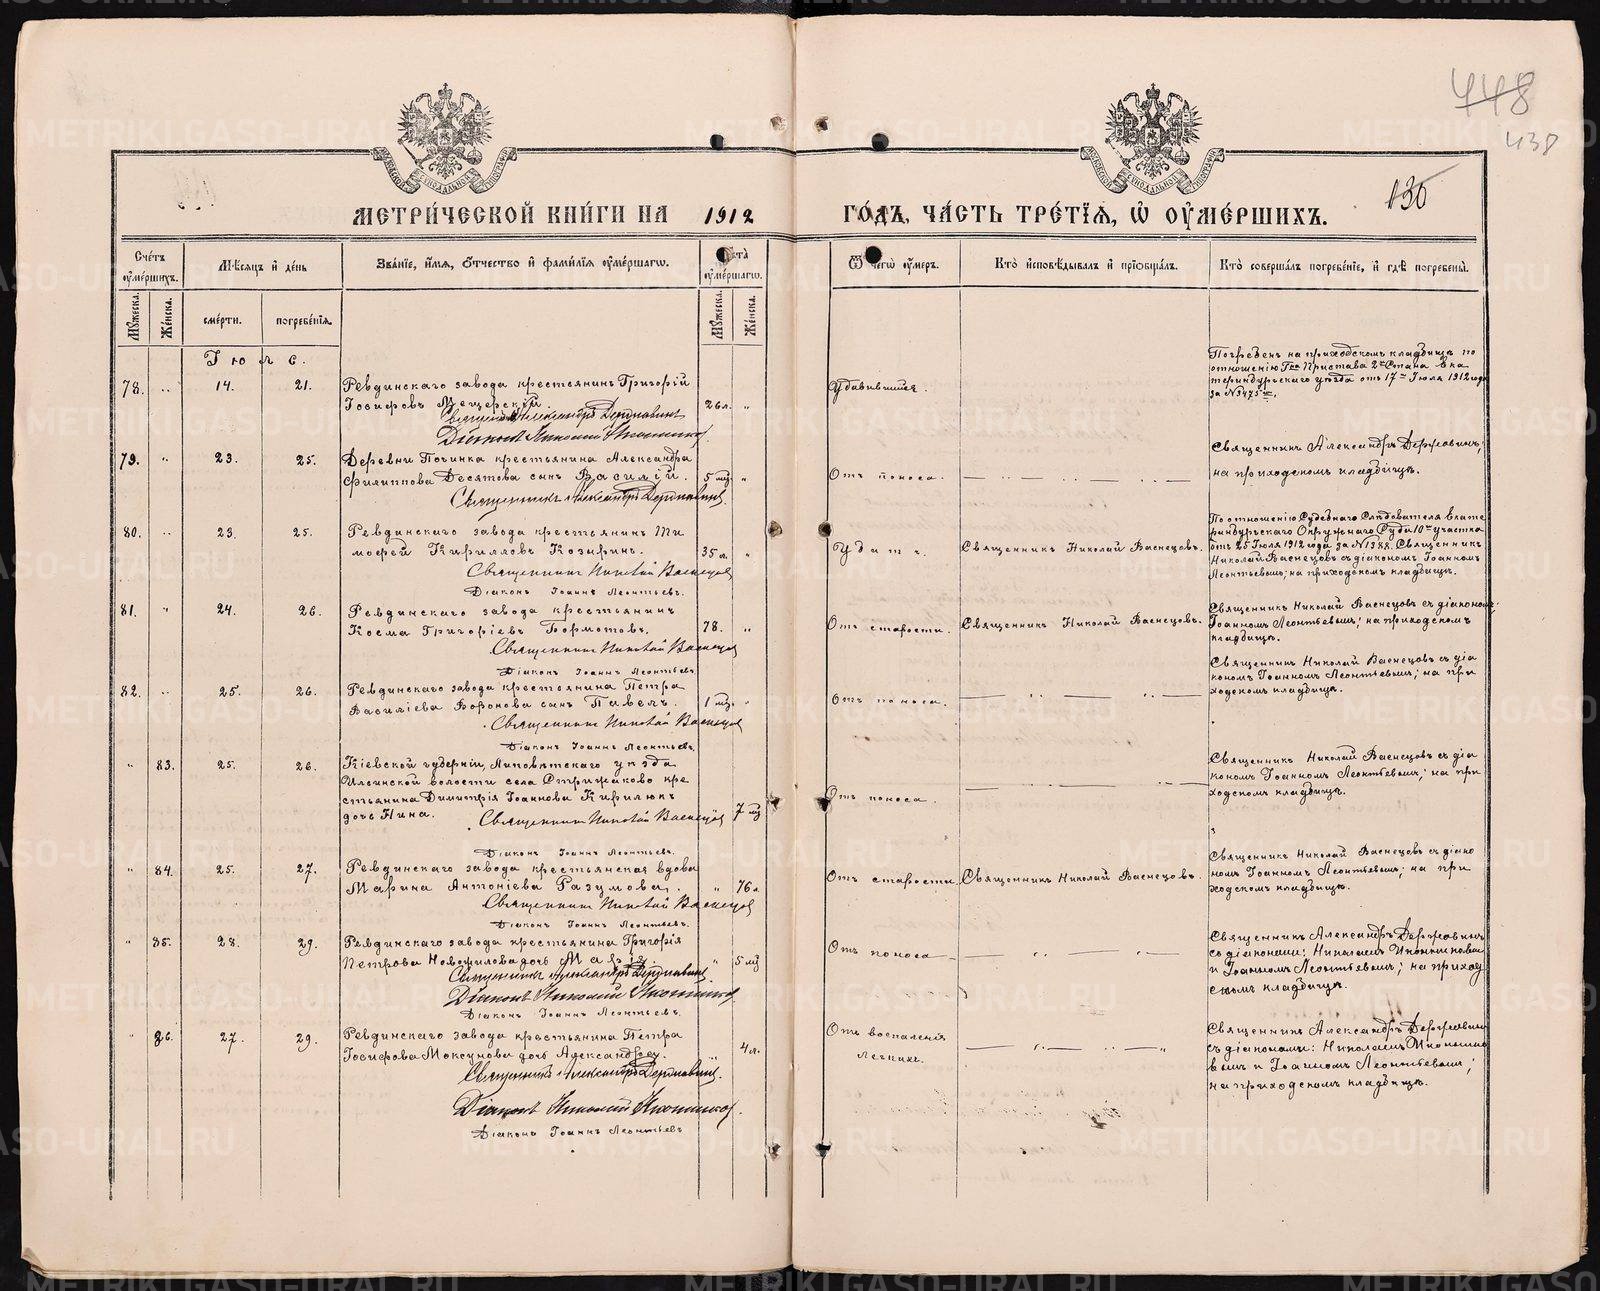 448
438
130
МОСКОВСКОЙ СѴНОДАЛЬНОЙ ТИПОГРАФІИ
МОСКОВСКОЙ СѴНОДАЛЬНОЙ ТИПОГРАФІИ
МЕТРИ́ЧЕСКОЙ КНИ́ГИ НА 1912 ГО́ДЪ, ЧА́СТЬ ТРЕ́ТІѦ, Ѡ ОУ҆МЕ́РШИХЪ.
Сче́тъ оу҆ме́ршихъ.
Мѣ́сѧцъ и҆ де́нь
Зва́нїе, и҆́мѧ, ѻ҆́тчество и҆ фами́лїѧ оу҆ме́ршагѡ.
Лѣта̀ оу҆ме́ршагѡ.
Ѿ чегѡ̀ оу҆́меръ.
Кто̀ и҆сповѣ́дывалъ и҆ прїѻбща́лъ.
Кто̀ соверша́лъ погребе́нїе, и҆ гдѣ̀ погребены̀.
Мꙋ́жеска.
Же́нска.
сме́рти.
погребе́нїѧ.
Мꙋ́жеска.
Же́нска.
Іюль.
78. " 14. 21.
Ревдинскаго завода крестьянинъ Григорій
Іосифовъ Мещерскій. 26 л. "
Священникъ Александръ Державинъ
Діаконъ Николай Иконниковъ
Удавившійся.
Погребенъ на приходскомъ кладбищѣ по
отношенію Гна Пристава 2го Стана Ека
теринбурьскаго уѣзда отъ 17го Іюля 1912 года
за №3475м.
79. " 23. 25.
Деревни Починка крестьянина Александра
Филиппова Десятова сынъ Василій. 5 мц "
Священникъ Александръ Державинъ
Отъ поноса.
Священникъ Александръ Державинъ;
на приходскомъ кладбищѣ.
80. " 23. 25.
Ревдинскаго завода крестьянинъ Ти
мофей Кирилловъ Козыринъ. 35 л. "
Священникъ Николай Васнецовъ
Діаконъ Іоаннъ Леонтьевъ.
Священникъ Николай Васнецовъ.
По отношенію Судебнаго Слѣдователя Екате
ринбурьскаго Окружнаго Суда 10го участка
отъ 25 Іюля 1912 года за №1388. Священникъ
Николай Васнецовъ съ діакономъ Іоанномъ
Леонтьевымъ; на приходскомъ кладбищѣ.
81. " 24. 26.
Ревдинскаго завода крестьянинъ
Косма Григоріевъ Бормотовъ. 78. "
Священникъ Николай Васнецовъ
Діаконъ Іоаннъ Леонтьевъ
Отъ старости.
Священникъ Николай Васнецовъ.
Священникъ Николай Васнецовъ съ діакономъ
Іоанномъ Леонтьевымъ; на приходскомъ
кладбищѣ.
82. " 25. 26.
Ревдинскаго завода крестьянина Петра
Василіева Воронова сынъ Павелъ. 1 мц. "
Священникъ Николай Васнецовъ
Діаконъ Іоаннъ Леонтьевъ.
Отъ поноса.
Священникъ Николай Васнецовъ съ діа
кономъ Іоанномъ Леонтьевымъ; на при
ходскомъ кладбищѣ.
" 83. 25. 26.
Кіевской губерніи, Липовѣтскаго уѣзда
Ильинской волости села Стрижаково кре
стьянина Димитрія Іоаннова Кирилюкъ
дочь Нина. 7 мц
Священникъ Николай Васнецовъ
Діаконъ Іоаннъ Леонтьевъ.
Отъ поноса.
Священникъ Николай Васнецовъ съ діа
кономъ Іоанномъ Леонтьевымъ; на при
ходскомъ кладбищѣ.
" 84. 25. 27.
Ревдинскаго завода крестьянская вдова
Марина Антоніева Разумова. " 76 л
Священникъ Николай Васнецовъ
Діаконъ Іоаннъ Леонтьевъ.
Отъ старости.
Священникъ Николай Васнецовъ.
Священникъ Николай Васнецовъ съ діако
номъ Іоанномъ Леонтьевымъ; на при
ходскомъ кладбищѣ.
" 85. 28. 29.
Ревдинскаго завода крестьянина Григорія
Петрова Новожилова дочь Марія. " 5 мц
Священникъ Александръ Державинъ
Діаконъ Николай Иконниковъ
Діаконъ Іоаннъ Леонтьевъ.
Отъ поноса
Священникъ Александръ Державинъ
со діаконами: Николаемъ Иконниковымъ
и Іоанномъ Леонтьевымъ; на приход
скомъ кладбищѣ.
" 86. 27. 29.
Ревдинскаго завода крестьянина Петра
Іосифова Мокеунова дочь Александра. " 4 л.
Священникъ Александръ Державинъ.
Діаконъ Николай Иконниковъ.
Діаконъ Іоаннъ Леонтьевъ
Отъ воспаленія
легкихъ.
Священникъ Александръ Державинъ
съ діаконами: Николаемъ Иконнико
вымъ и Іоанномъ Леонтьевымъ;
на приходскомъ кладбищѣ.
METRIKI.GASO-URAL.RU